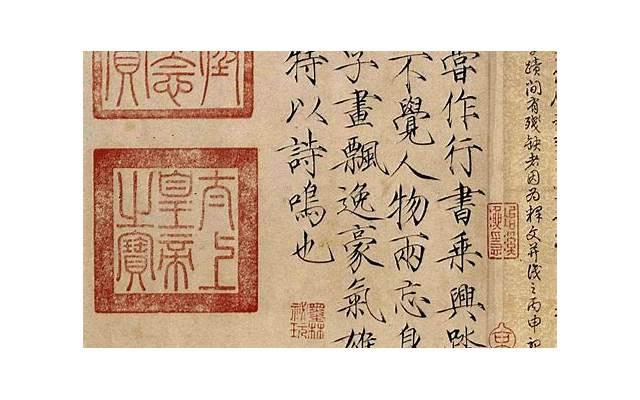 蹟間有殘缺者因為釋文并識之丙申
嘗作行書乘興踏
不覺人物兩忘身
字畫飄逸豪氣雄
特以詩鳴也
墨林
秘玩
太上
皇帝
之寶